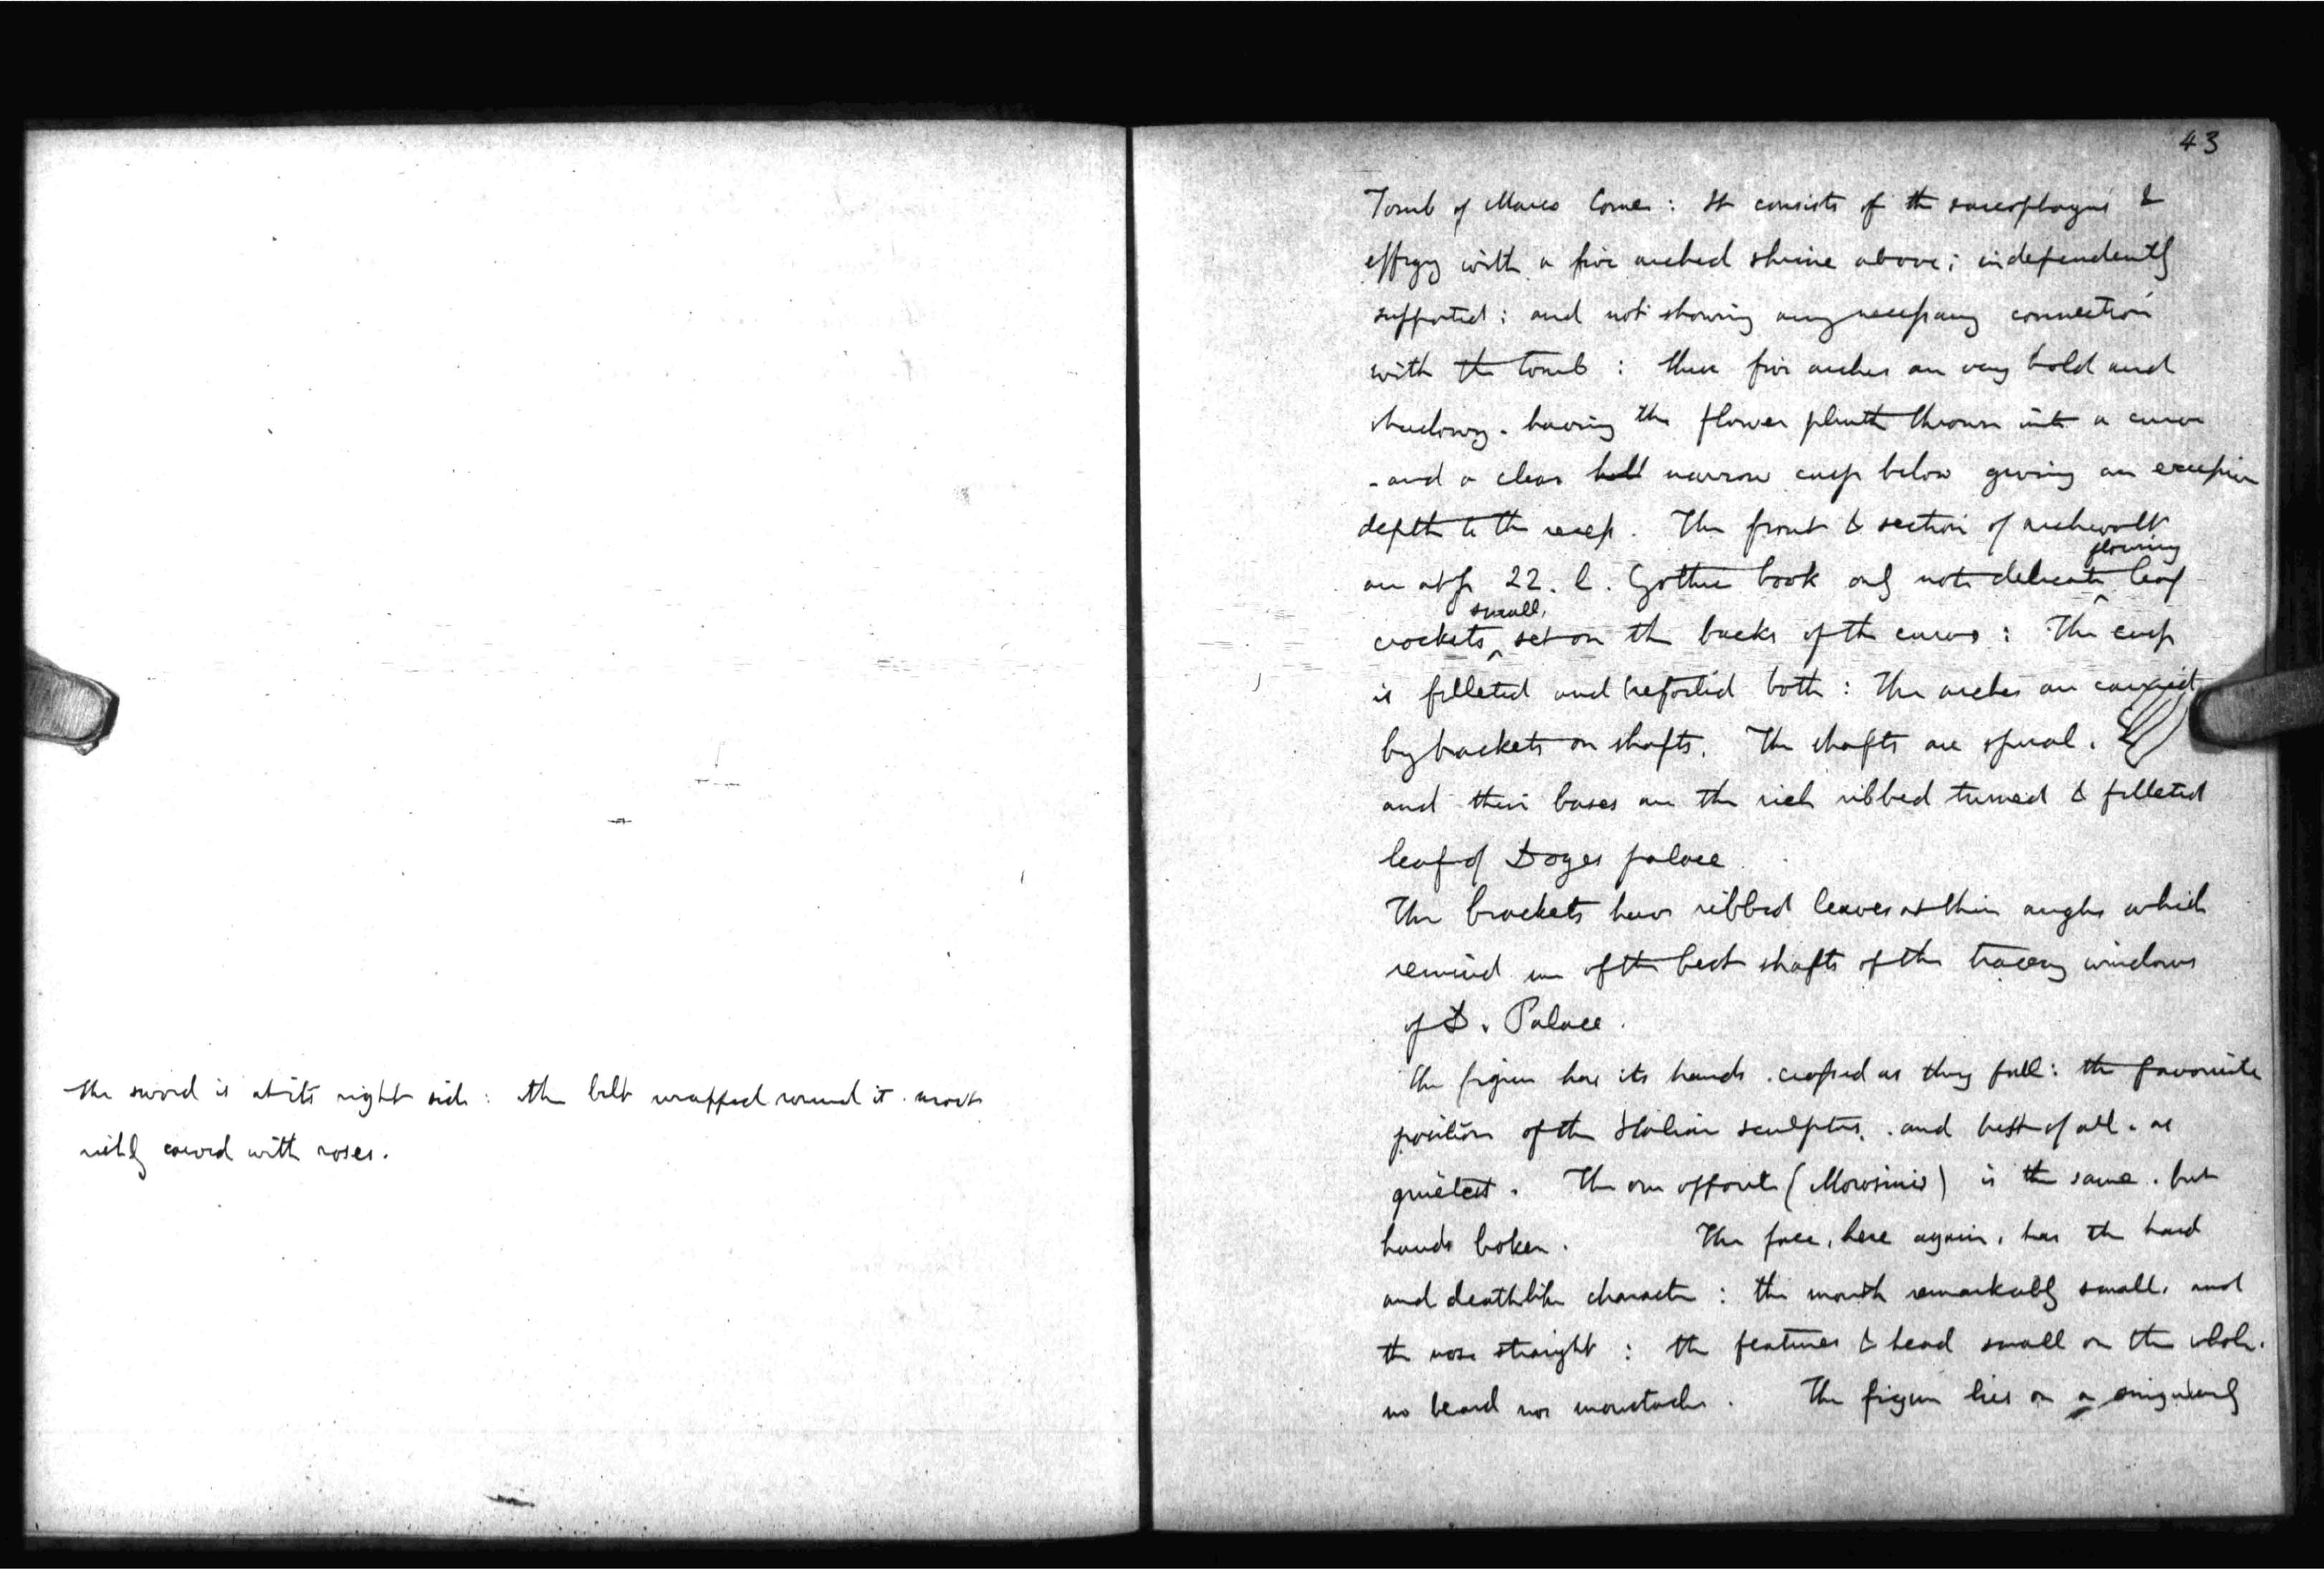 the sword is at its right side : the belt wrapped round it . most
richly covered with roses.
43
Tomb of Marco Corner : It consists of the sarcophagus &
effigy with a five arched shrine above ; independently
supported : and not showing any necessary connection
with the tomb : these five arches are very bold and
shadowy . having the flower plinth thrown into a curve
. and a clear narrow cusp below giving an excessive
depth to the recess . The front & section of archivolt
are at p 22 . l . Gothic book only note delicate flowing leaf
crockets small, set on the backs of the curves : The cusp
is filleted and trefoiled both : The arches are carried
by brackets on shafts . The shafts are spiral .
and their bases are the rich ribbed turned & filleted
leaf of Doges palace
The brackets have ribbed leaves at their angles which
remind me of the best shafts of the tracery windows
of D . Palace .
The figure has its hands . crossed as they fall : the favourite
position of the Italian sculptors . and best of all . as
quietest . The one opposite (Morosinis) is the same . but
hands broken . The face , here again , has the hard
and deathlike character : the mouth remarkably small , and
the nose straight : the features & head small on the whole .
no beard nor moustache . The figure lies on a singularly